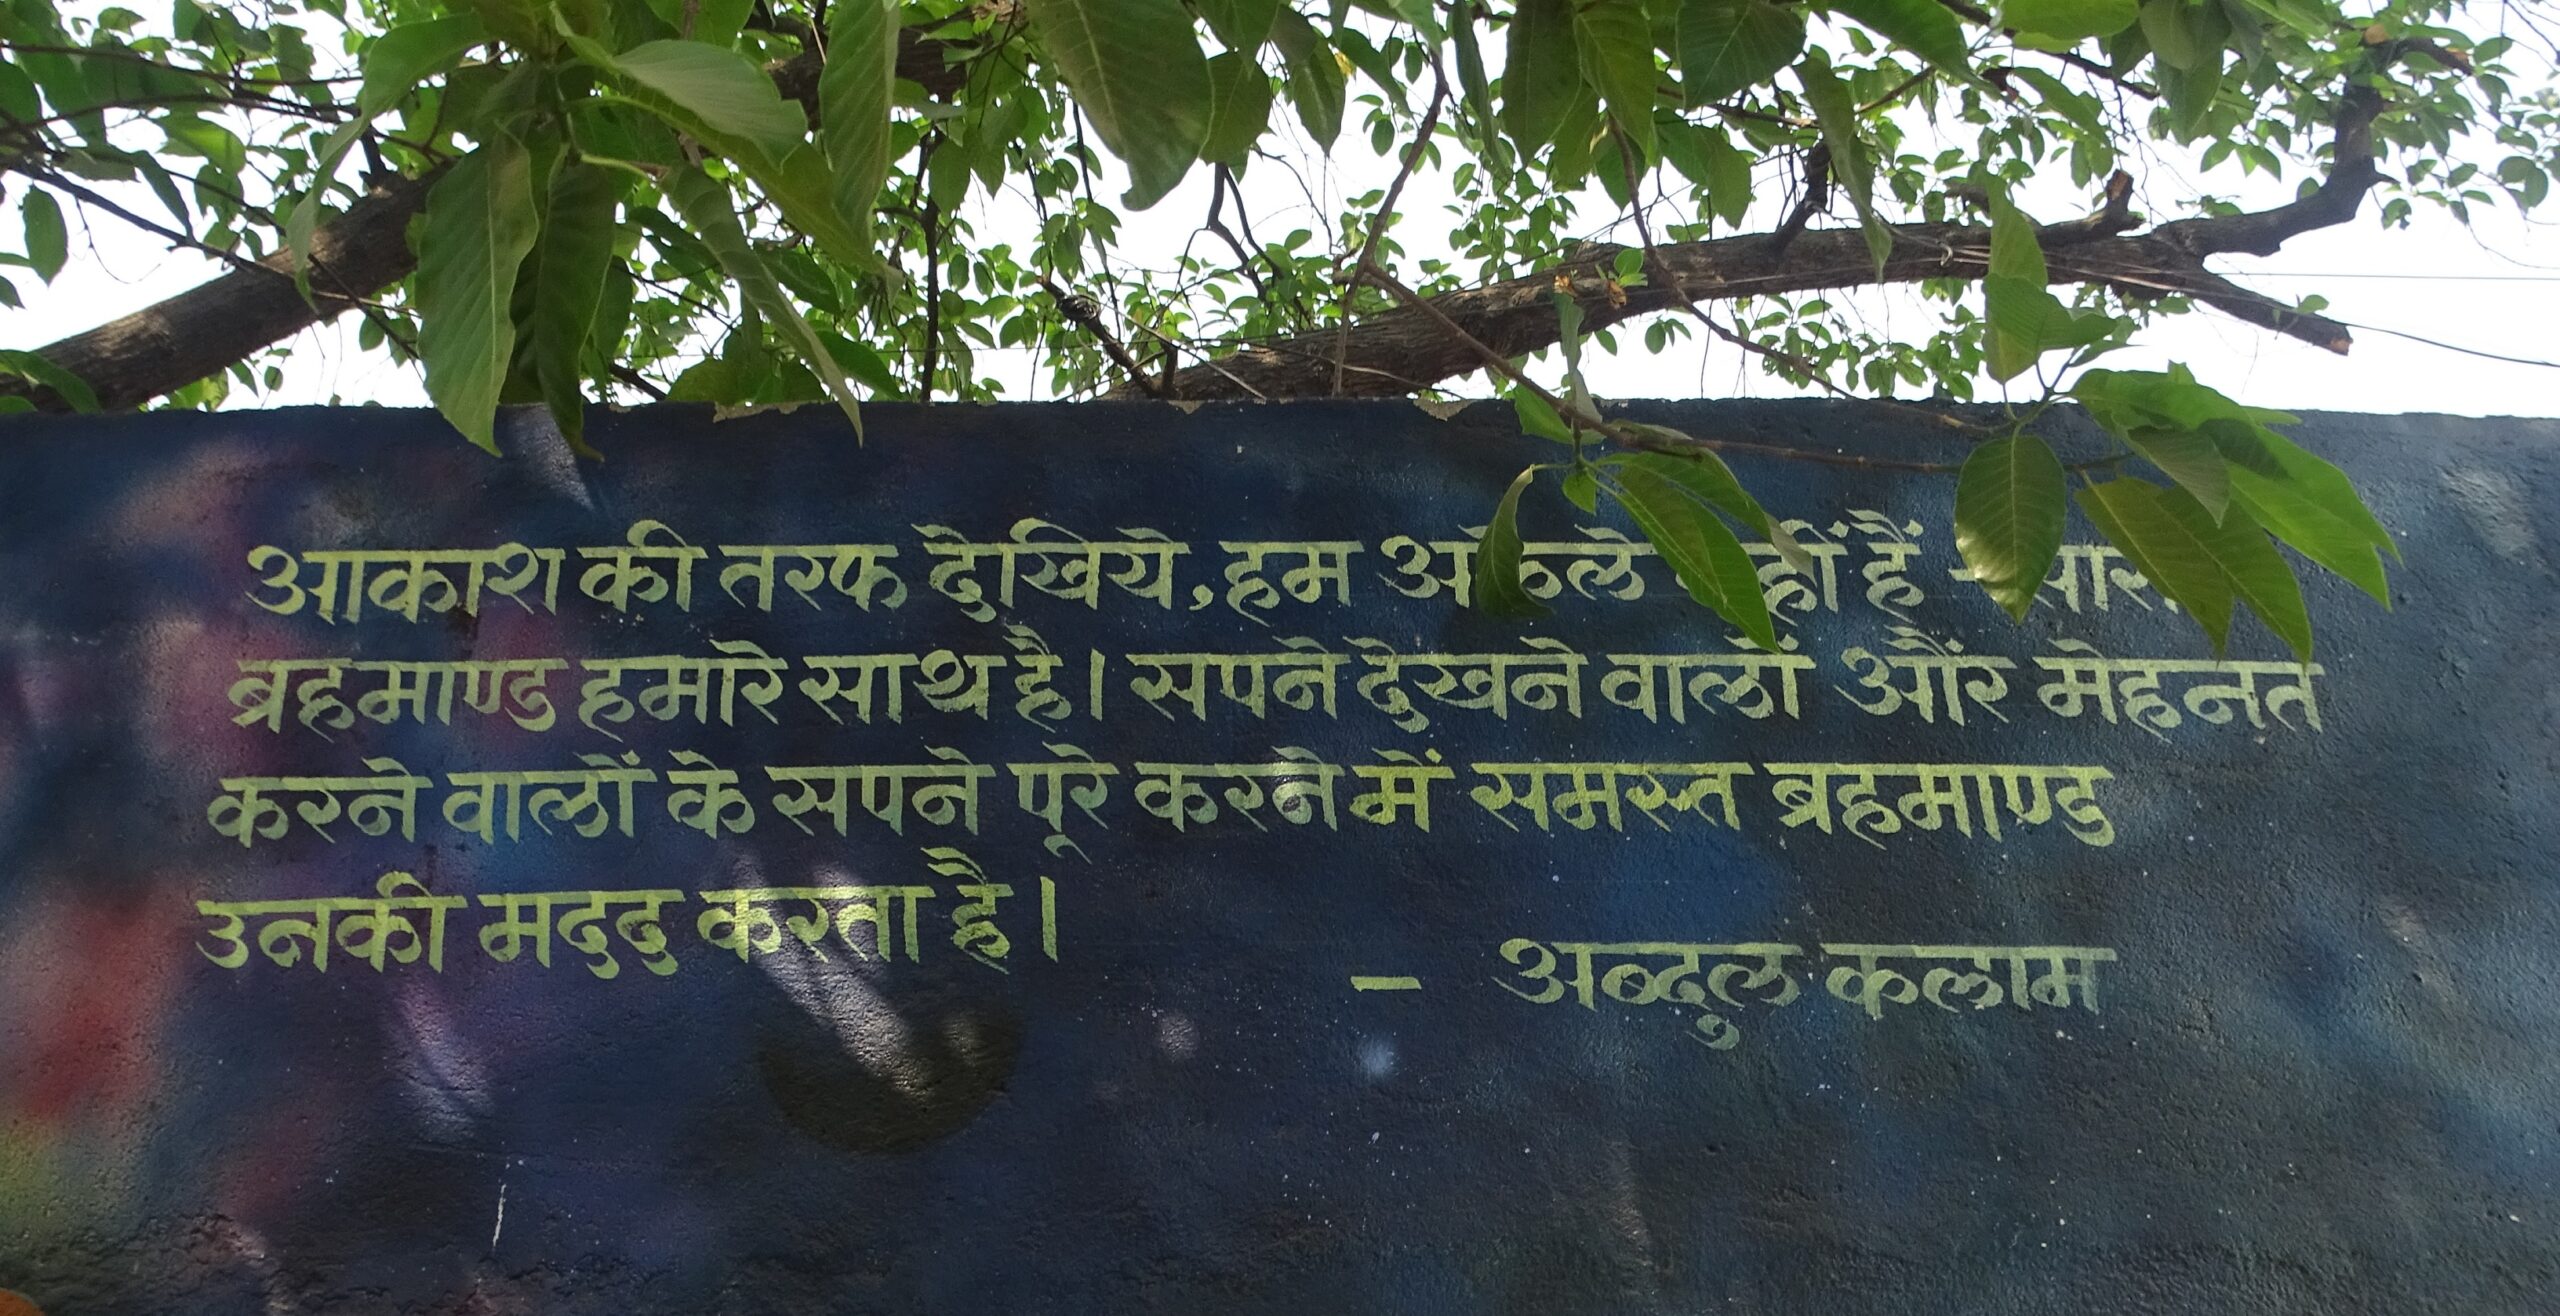 आकाश की तरफ देखिये, हम अकेले नहीं हैं - सारा
ब्रहमाण्ड हमारे साथ है। सपने देखने वालों औंर मेहनत
करने वालों के सपने पूरे करने में समस्त ब्रहमाण्ड
उनकी मदद करता है।
- अब्दुल कलाम